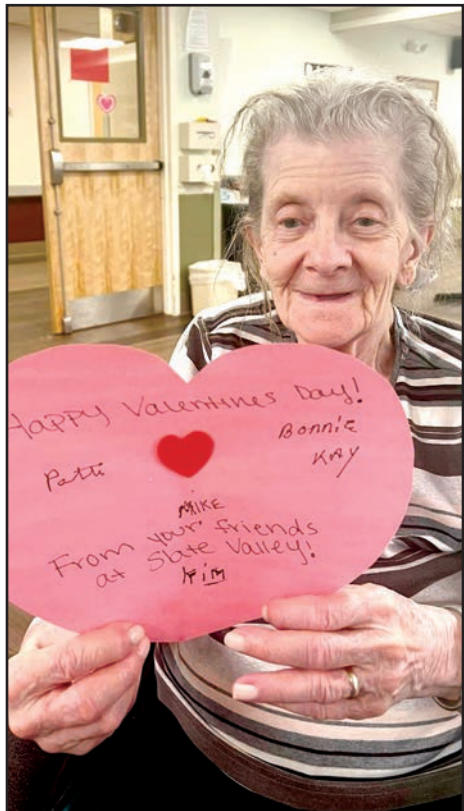 Happy Valentines Day!
Patti
Bonnie
KAY
MIKE
From your friends
at Slate Valley!
Kim